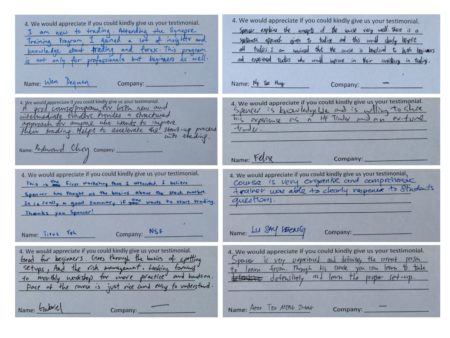 4. We would appreciate if you could kindly give us your testimonial.
I am new to trading. Attending the Synapse
Training Program I gained a lot of insight and
knowledge about trading and forex. This program
is not only for professionals but beginners as well.
Name: Wen Company:
4. We would appreciate if you could kindly give us your testimonial.
Spencer explains the concepts of the course very well. There is a
systematic approach given to trading and this would clearly benefit
all traders. I am assured that the course is beneficial to both beginners
and experienced traders who would improve in their in trading.
Name: Company:
4. We would appreciate if you could kindly give us your testimonial.
A good course/program for both new and
intermediate traders. Provides a structured
approach for anyone who wants to improve
their trading. Helps to accelerate the start-up process
with trading
Name: Edmund Company:
4. We would appreciate if you could kindly give us your testimonial.
Spencer is knowledgable and is willing to share
his experience as a trader and an external
trader.
Name: Felix Company:
4. We would appreciate if you could kindly give us your testimonial.
This is first marketing that I attended. I believe
Spencer has taught us the basics about the stock market.
It is really a good if wants to start trading.
Thank you Spencer!
Name: Titus Company: NSF
4. We would appreciate if you could kindly give us your testimonial.
course is very organize and comprehensive
trainer was able to clearly response to student's
questions.
Name: Company:
4. We would appreciate if you could kindly give us your testimonial.
Good for beginners. Goes through the basics of spotting
setups, and the risk management. Looking forward
to monthly workshop for more practice and hands on
Pace of the course is just nice and easy to understand.
Name: Gabriel Company: —
4. We would appreciate if you could kindly give us your testimonial.
Spencer is very experienced and the person
to learn from. Through his course you can learn to trade
defensively and learn the proper set-up.
Name: Company: —